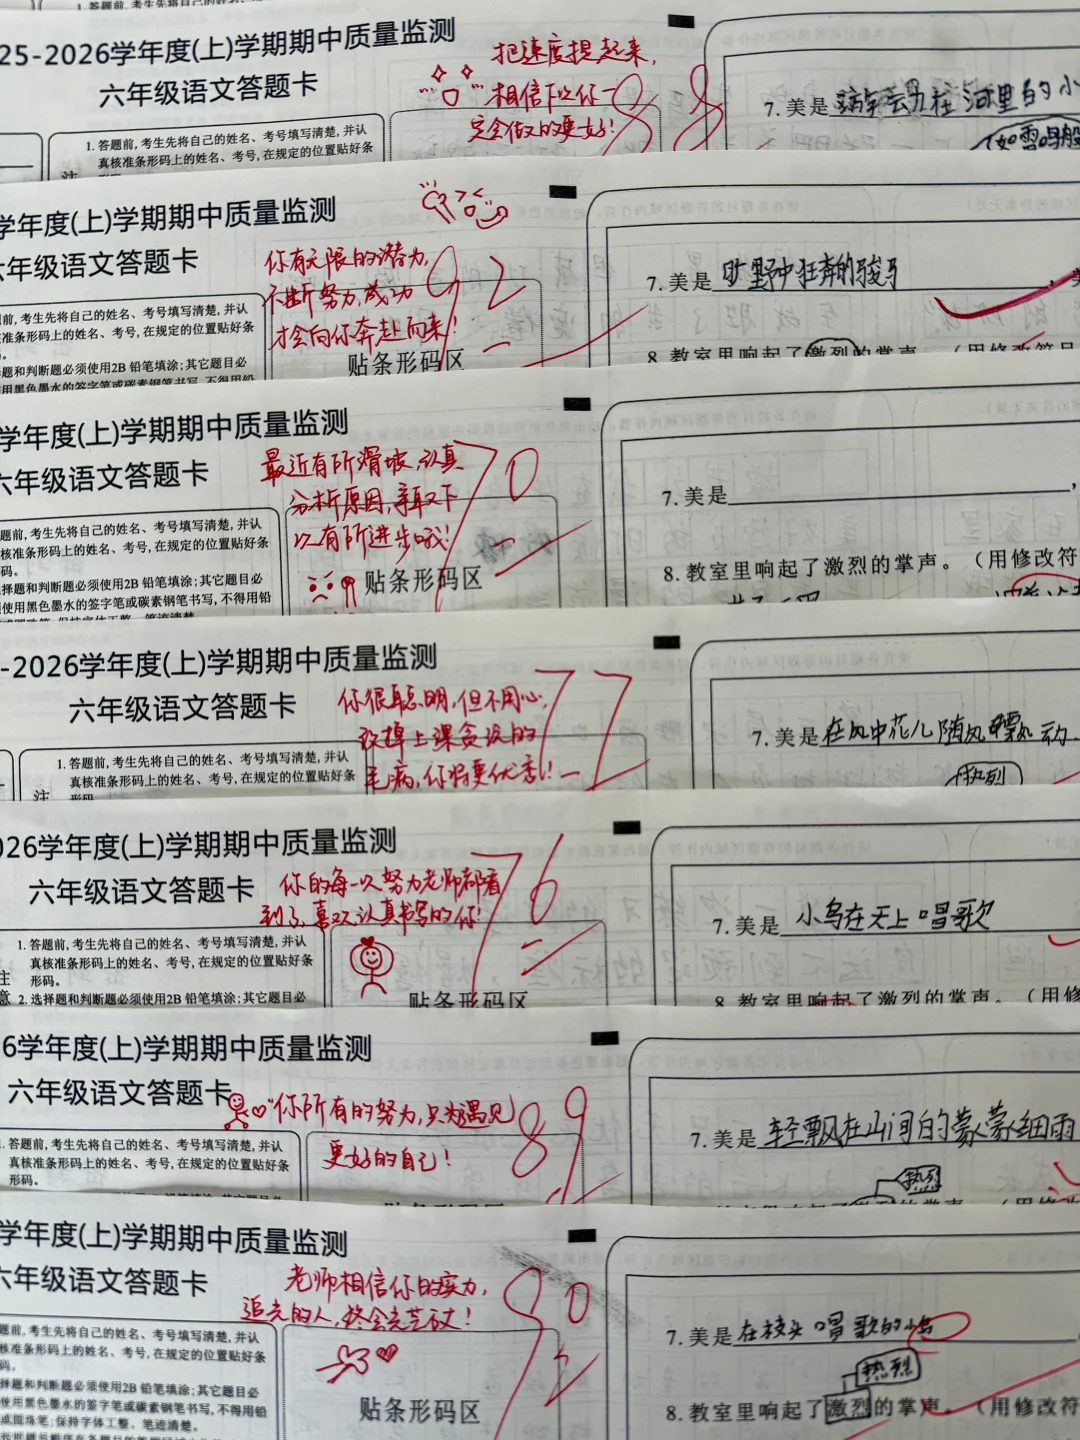 25-2026学年度(上)学期期中质量监测
六年级语文答题卡
把速度提起来,
相信下次你一
定会做的更好!
88
1. 答题前,考生先将自己的姓名、考号填写清楚,并认
真核准条形码上的姓名、考号,在规定的位置贴好条
注
7. 美是
河里的小
学年度(上)学期期中质量监测
六年级语文答题卡
你有无限的潜力,
不断努力,成功
才会向你奔赴而来!
92
前,考生先将自己的姓名、考号填写清楚,并认
核准条形码上的姓名、考号,在规定的位置贴好条
题和判断题必须使用2B 铅笔填涂;其它题目必
用黑色墨水的签字笔或碳素钢笔书写,不得用铅
贴条形码区
7. 美是 旷野中狂奔的骏马,
8. 教室里响起了激烈的掌声。(用修改符号
学年度(上)学期期中质量监测
六年级语文答题卡
最近有所滑坡,认真
分析原因,争取下
以有所进步哦!
70
题前,考生先将自己的姓名、考号填写清楚,并认
核准条形码上的姓名、考号,在规定的位置贴好条
码。
择题和判断题必须使用2B 铅笔填涂;其它题目必
使用黑色墨水的签字笔或碳素钢笔书写,不得用铅
贴条形码区
7. 美是
8. 教室里响起了激烈的掌声。(用修改符
-2026学年度(上)学期期中质量监测
六年级语文答题卡
你很聪明,但不用心,
改掉上课贪没的
毛病,你将更优秀!
77
1. 答题前,考生先将自己的姓名、考号填写清楚,并认
真核准条形码上的姓名、考号,在规定的位置贴好条
形码
注
7. 美是 在风中花儿随风飘动
热烈
026学年度(上)学期期中质量监测
六年级语文答题卡
你的每一次努力老师都看
到了,喜欢认真书写的你!
76
1. 答题前,考生先将自己的姓名、考号填写清楚,并认
真核准条形码上的姓名、考号,在规定的位置贴好条
形码。
注
意
2. 选择题和判断题必须使用2B 铅笔填涂;其它题目必
贴条形码区
7. 美是 小鸟在天上唱歌
8. 教室里响起了激烈的掌声。(用修
6学年度(上)学期期中质量监测
六年级语文答题卡
"你所有的努力,只为遇见
更好的自己!
89
1. 答题前,考生先将自己的姓名、考号填写清楚,并认
真核准条形码上的姓名、考号,在规定的位置贴好条
形码。
7. 美是 轻飘在山间的蒙蒙细雨
热烈
学年度(上)学期期中质量监测
六年级语文答题卡
老师相信你的实力,
追光的人,终会光芒万丈!
90
题前,考生先将自己的姓名、考号填写清楚,并认
核准条形码上的姓名、考号,在规定的位置贴好条
码。
择题和判断题必须使用2B 铅笔填涂;其它题目必
使用黑色墨水的签字笔或碳素钢笔书写,不得用铅
或圆珠笔;保持字体工整、笔迹清楚。
贴条形码区
7. 美是 在枝头唱歌的小鸟
热烈
8. 教室里响起了激烈的掌声。(用修改符